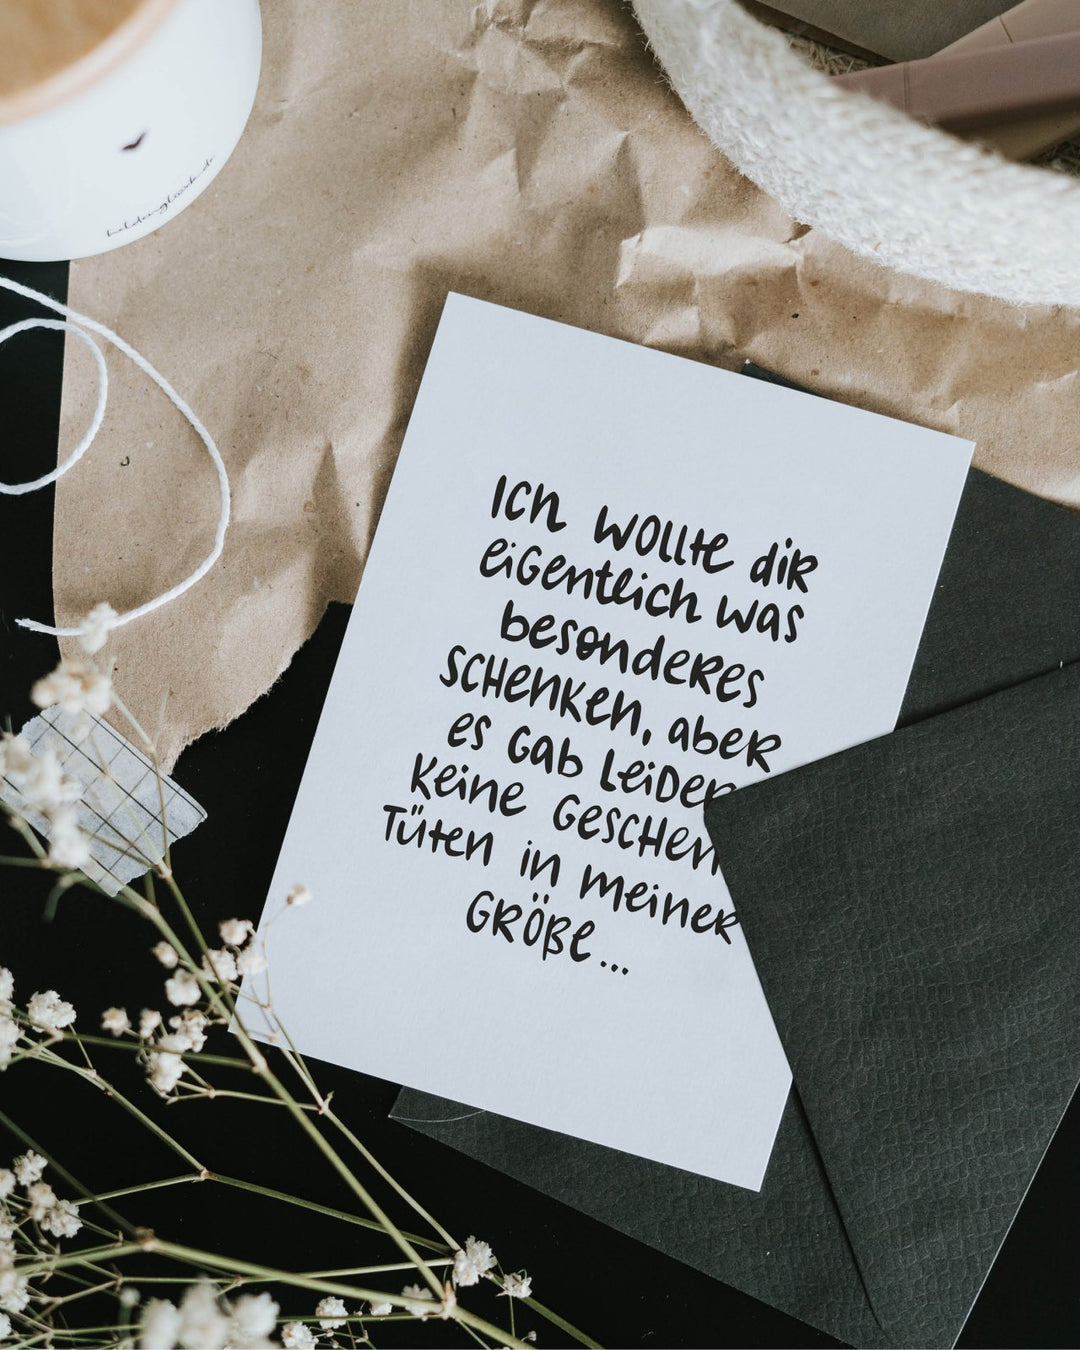 heldenglück.de
Ich wollte dir
eigentlich was
besonderes
schenken, aber
es gab leider
keine Geschen
Tüten in meiner
Größe...